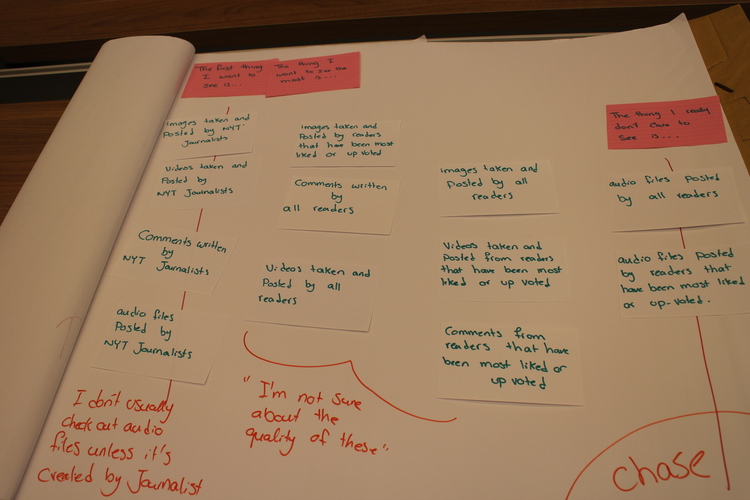 The first thing
I want to
see is...
The thing I
want to see the
most is...
The thing I really
don't care to
see is....
Images taken and
Posted by NYT
Journalists
Videos taken and
Posted by
NYT Journalists
Comments written
by
NYT Journalists
audio files
Posted by
NYT Journalists
I don't usually
check out audio
files unless it's
Created by Journalist
Images taken and
Posted by readers
that have been most
liked or up voted
Comments written
by
all readers
Videos taken and
Posted by all
readers
"I'm not sure
about the
quality of these"
images taken and
Posted by all
readers
Videos taken and
Posted from readers
that have been most
liked or up voted
Comments from
readers that have
been most liked or
up voted
audio files posted
by all readers
audio files posted
by readers that
have been most liked
or up-voted.
chase